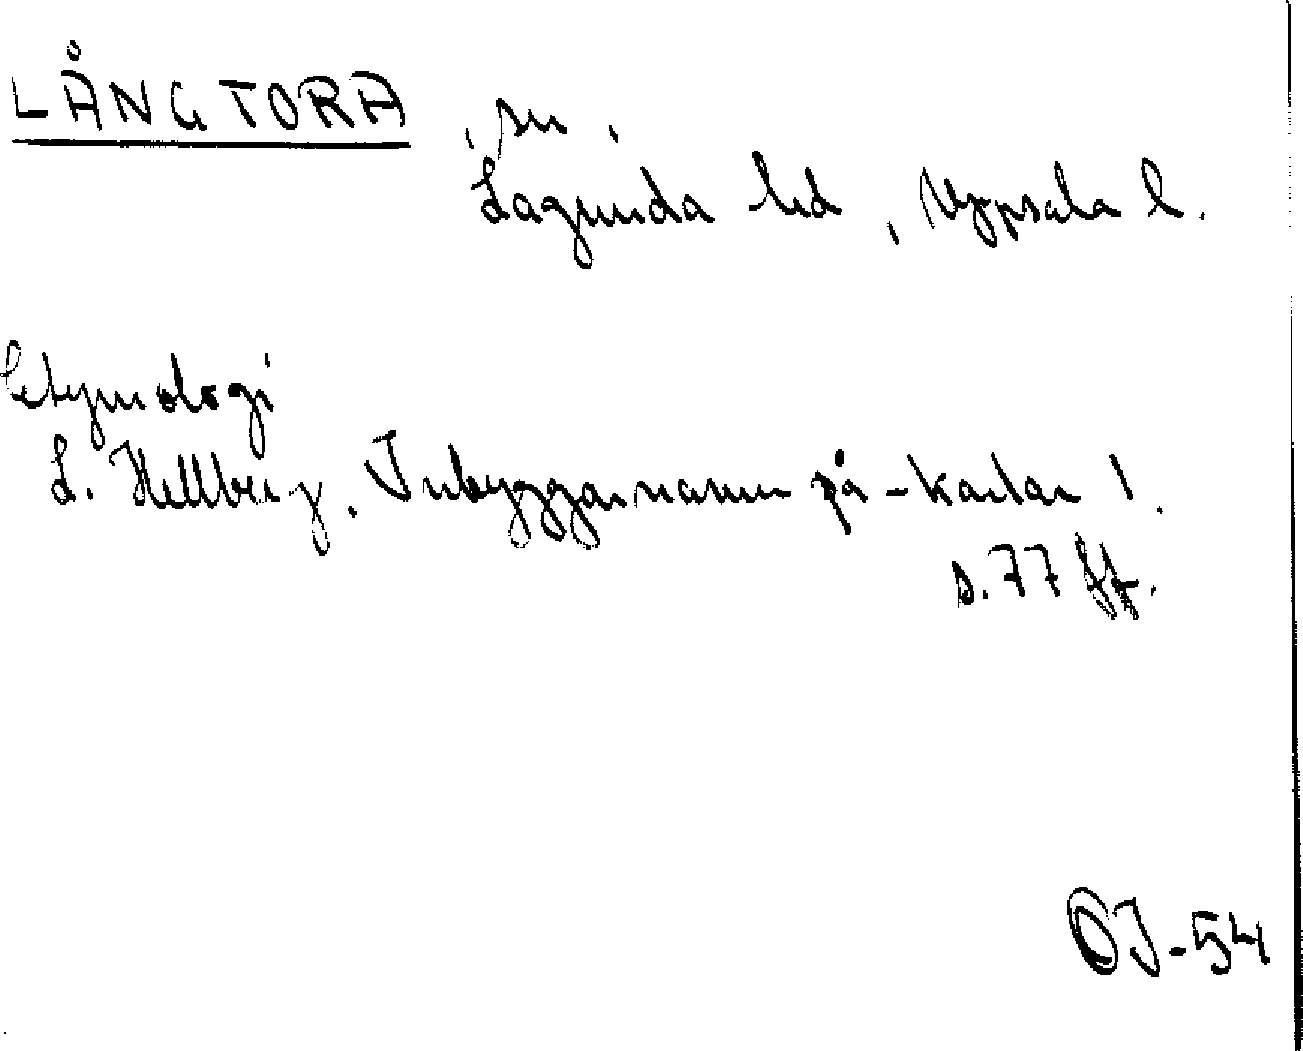 LÅNGTORA, sn,
Lagunda hd, Uppsala l.
Etymologi
L. Hellberg, Inbyggarnamn på -karlar 1.
s. 77 ff.
OJ-54